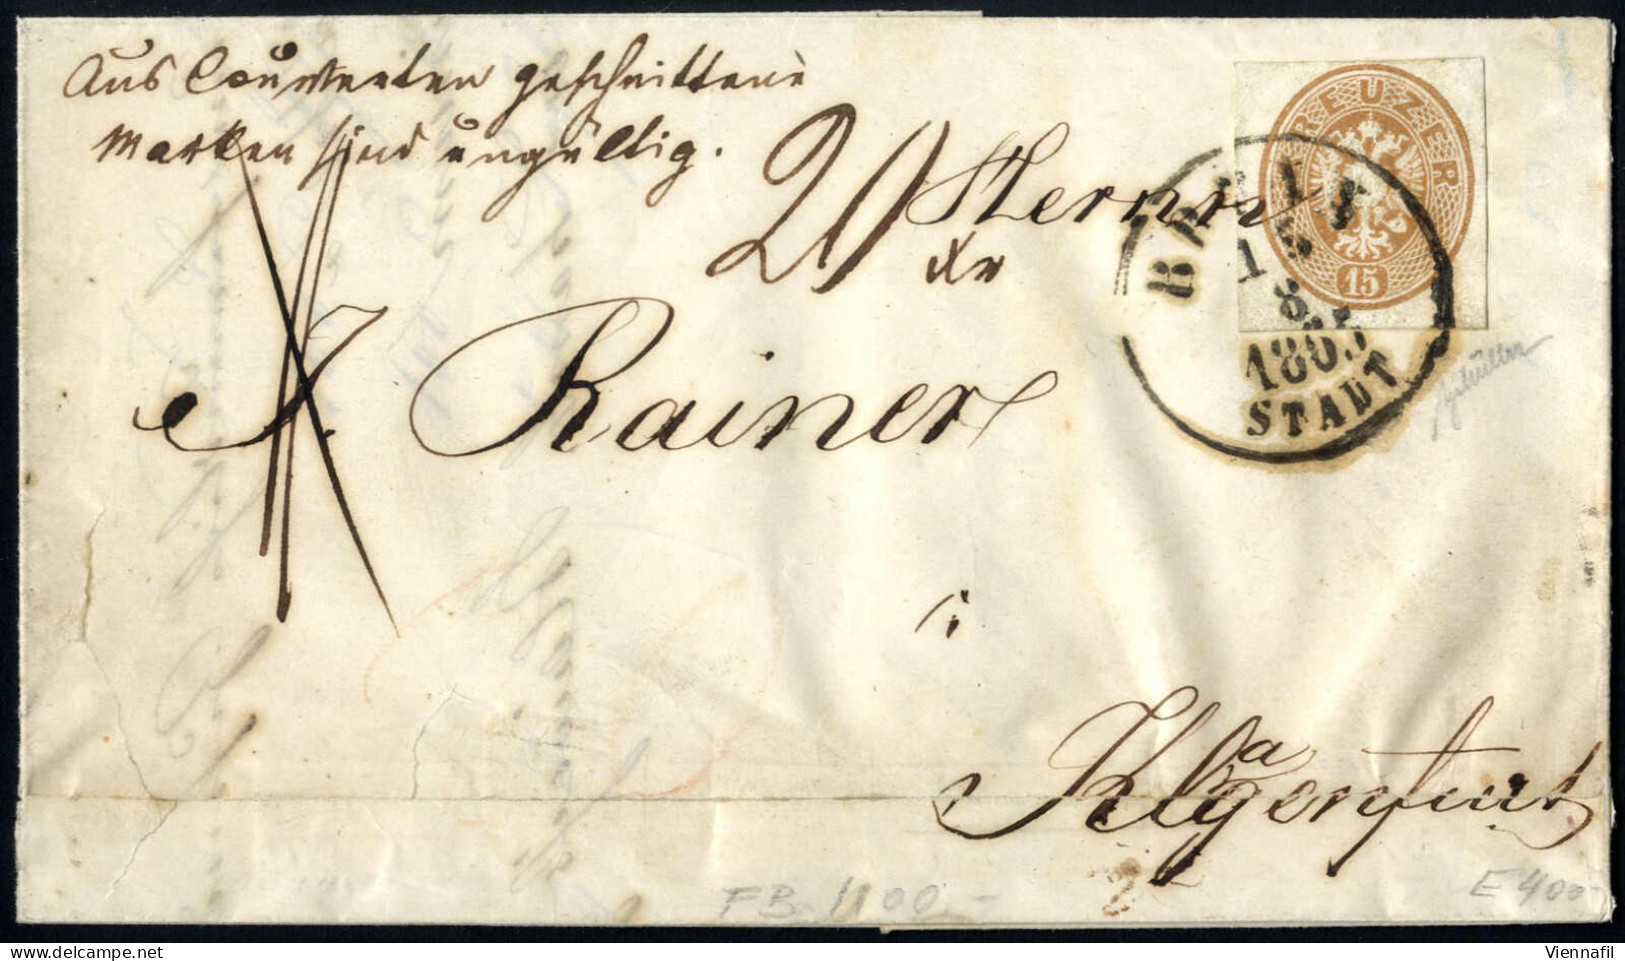 Aus Couverten geschnittene
Marken sind ungültig.
20
Herrn
KREUZER
15
BRÜNN
15
8
1865
STADT
J. Rainer
i
Klagenfurt
FB 1100.-
E 400
Viennafil